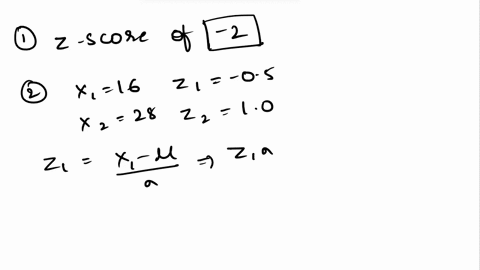 ① z-score of -2
② x₁ = 16 z₁ = -0.5
x₂ = 28 z₂ = 1.0
z₁ = (x₁ - μ)/a ⇒ z₁ a